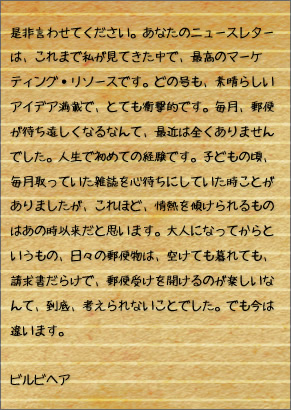 是非言わせてください。あなたのニュースレター
は、これまで私が見てきた中で、最高のマーケ
ティング・リソースです。どの号も、素晴らしい
アイデア満載で、とても衝撃的です。毎月、郵便
が待ち遠しくなるなんて、最近は全くありません
でした。人生で初めての経験です。子どもの頃、
毎月取っていた雑誌を心待ちにしていた時ことが
ありましたが、これほど、情熱を傾けられるもの
はあの時以来だと思います。大人になってからと
いうもの、日々の郵便物は、空けても暮れても、
請求書だらけで、郵便受けを開けるのが楽しいな
んて、到底、考えられないことでした。でも今は
違います。
ビルビヘア